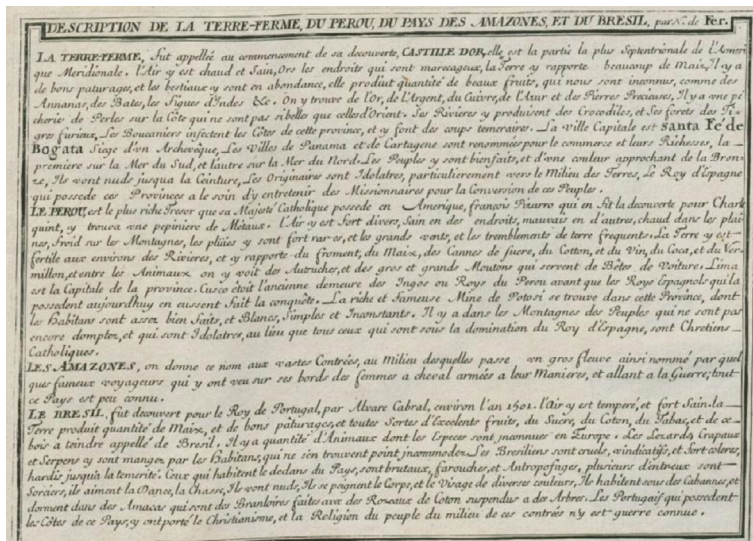 DESCRIPTION DE LA TERRE-FERME, DU PEROU, DU PAYS DES AMAZONES, ET DU BRESIL, par N. de Fer.
LA TERRE-FERME, fut appellée au commencement de sa decouverte, CASTILLE D'OR, elle est la partie la plus Septentrionale de l'Ameri
que Meridionale. l'Air y est chaud et Sain, Ors les endroits qui sont marecageux, la Terre y rapporte beaucoup de Maix, Il y a
de bons paturages, et les bestiaux y sont en abondance, elle produit quantité de beaux fruits, qui nous sont inconnus, comme des
Annanas, des Bates, les Figues d'Indes &c. On y trouve de l'Or, de l'Argent, du Cuivre, de l'Azur et des Pierres Precieuses, Il y a vne pé
cherie de Perles sur la Côte qui ne sont pas si belles que celles d'Orient. Ses Rivieres y produisent des Crocodiles, et Ses forets des Ti-
gres furieux, Les Boucaniers infectent les Côtes de cette province, et y font des coups temeraires. La ville Capitale est santa Fé de
Bogata Siege d'vn Archevêque, Les Villes de Panama et de Cartagene sont renommées pour le commerce et leurs Richesses, la
premiere sur la Mer du Sud, et l'autre sur la Mer du Nord. Les Peuples y sont bien faits, et d'vne couleur approchant de la Bron-
ze, Ils vont nuds jusqua la Ceinture, Les Originaires sont Idolatres, particulierement vers le Milieu des Terres, Le Roy d'Espagne
qui possede ces Provinces a le soin d'y entretenir des Missionnaires pour la Conversion de ces Peuples.
LE PEROU, est le plus riche Tresor que sa Majesté Catholique possede en Amerique, françois Pizarro qui en fit la decouverte pour Charle
quint, y trouva vne pepiniere de Métaux. l'Air y est fort divers, Sain en des endroits, mauvais en d'autres, chaud dans les plai
nes, froid sur les Montagnes, les pluïes y sont fort rares, et les grands vents, et les tremblements de terre frequents. La Terre y est
fertile aux environs des Rivieres, et y rapporte du froment, du Maix, des Cannes de sucre, du Cotton, et du Vin, du Coca, et du Ver
millon, et entre les Animaux on y voit des Autruches, et des gros et grands Moutons qui servent de Bêtes de Voiture. Lima
est la Capitale de la province. Cusco étoit l'ancienne demeure des Ingos ou Roys du Perou avant que les Roys Espagnols qui la
possedent aujourdhuy en eussent fait la conquête. La riche et fameuse Mine de Potosi se trouve dans cette Province, dont
les Habitans sont assez bien faits, et Blancs, Simples et Inconstants. Il y a dans les Montagnes des Peuples qui ne sont pas
encore domptez, et qui sont Idolatres, au lieu que tous ceux qui sont sous la domination du Roy d'Espagne, sont Chretiens
Catholiques.
LES AMAZONES, on donne ce nom aux vastes Contrées, au Milieu desquelles passe vn gros fleuve ainsi nommé par quel
ques fameux voyageurs qui y ont veu sur ses bords des femmes a cheval armées a leur Manieres, et allant a la Guerre; tout
ce Pays est peu connu.
LE BRESIL, fut decouvert pour le Roy de Portugal, par Alvare Cabral, environ l'an 1501. l'Air y est temperé, et fort Sain. la
Terre produit quantité de Maix, et de bons paturages, et toutes Sortes d'Excelents fruits, du Sucre, du Coton, du Tabac, et de ce
bois a teindre appellé de Bresil. Il y a quantité d'Animaux dont les Especes sont jnconnuës en Europe. Les Lezards, Crapaux
et Serpens y sont mangez par les Habitans, qui ne s'en trouvent point jncommodez. Les Bresiliens sont cruels, vindicatifs, et fort coleres,
hardis jusqu'à la temerité. Ceux qui habitent le dedans du Pays, sont brutaux, farouches, et Antropofages, plusieurs d'entreux sont
Sorciers, ils aiment la Dance, la Chasse, Ils vont nuds, Ils se peignent le Corps, et le Visage de diverses couleurs, Ils habitent sous des Cabannes, et
dorment dans des Amacas qui sont des Branloires faites avec des Rozeaux de Coton suspendus a des Arbres. Les Portugais qui possedent
les Côtes de ce Pays, y ont porté le Christianisme, et la Religion du peuple du milieu de ces contrées n'y est guerre connue.